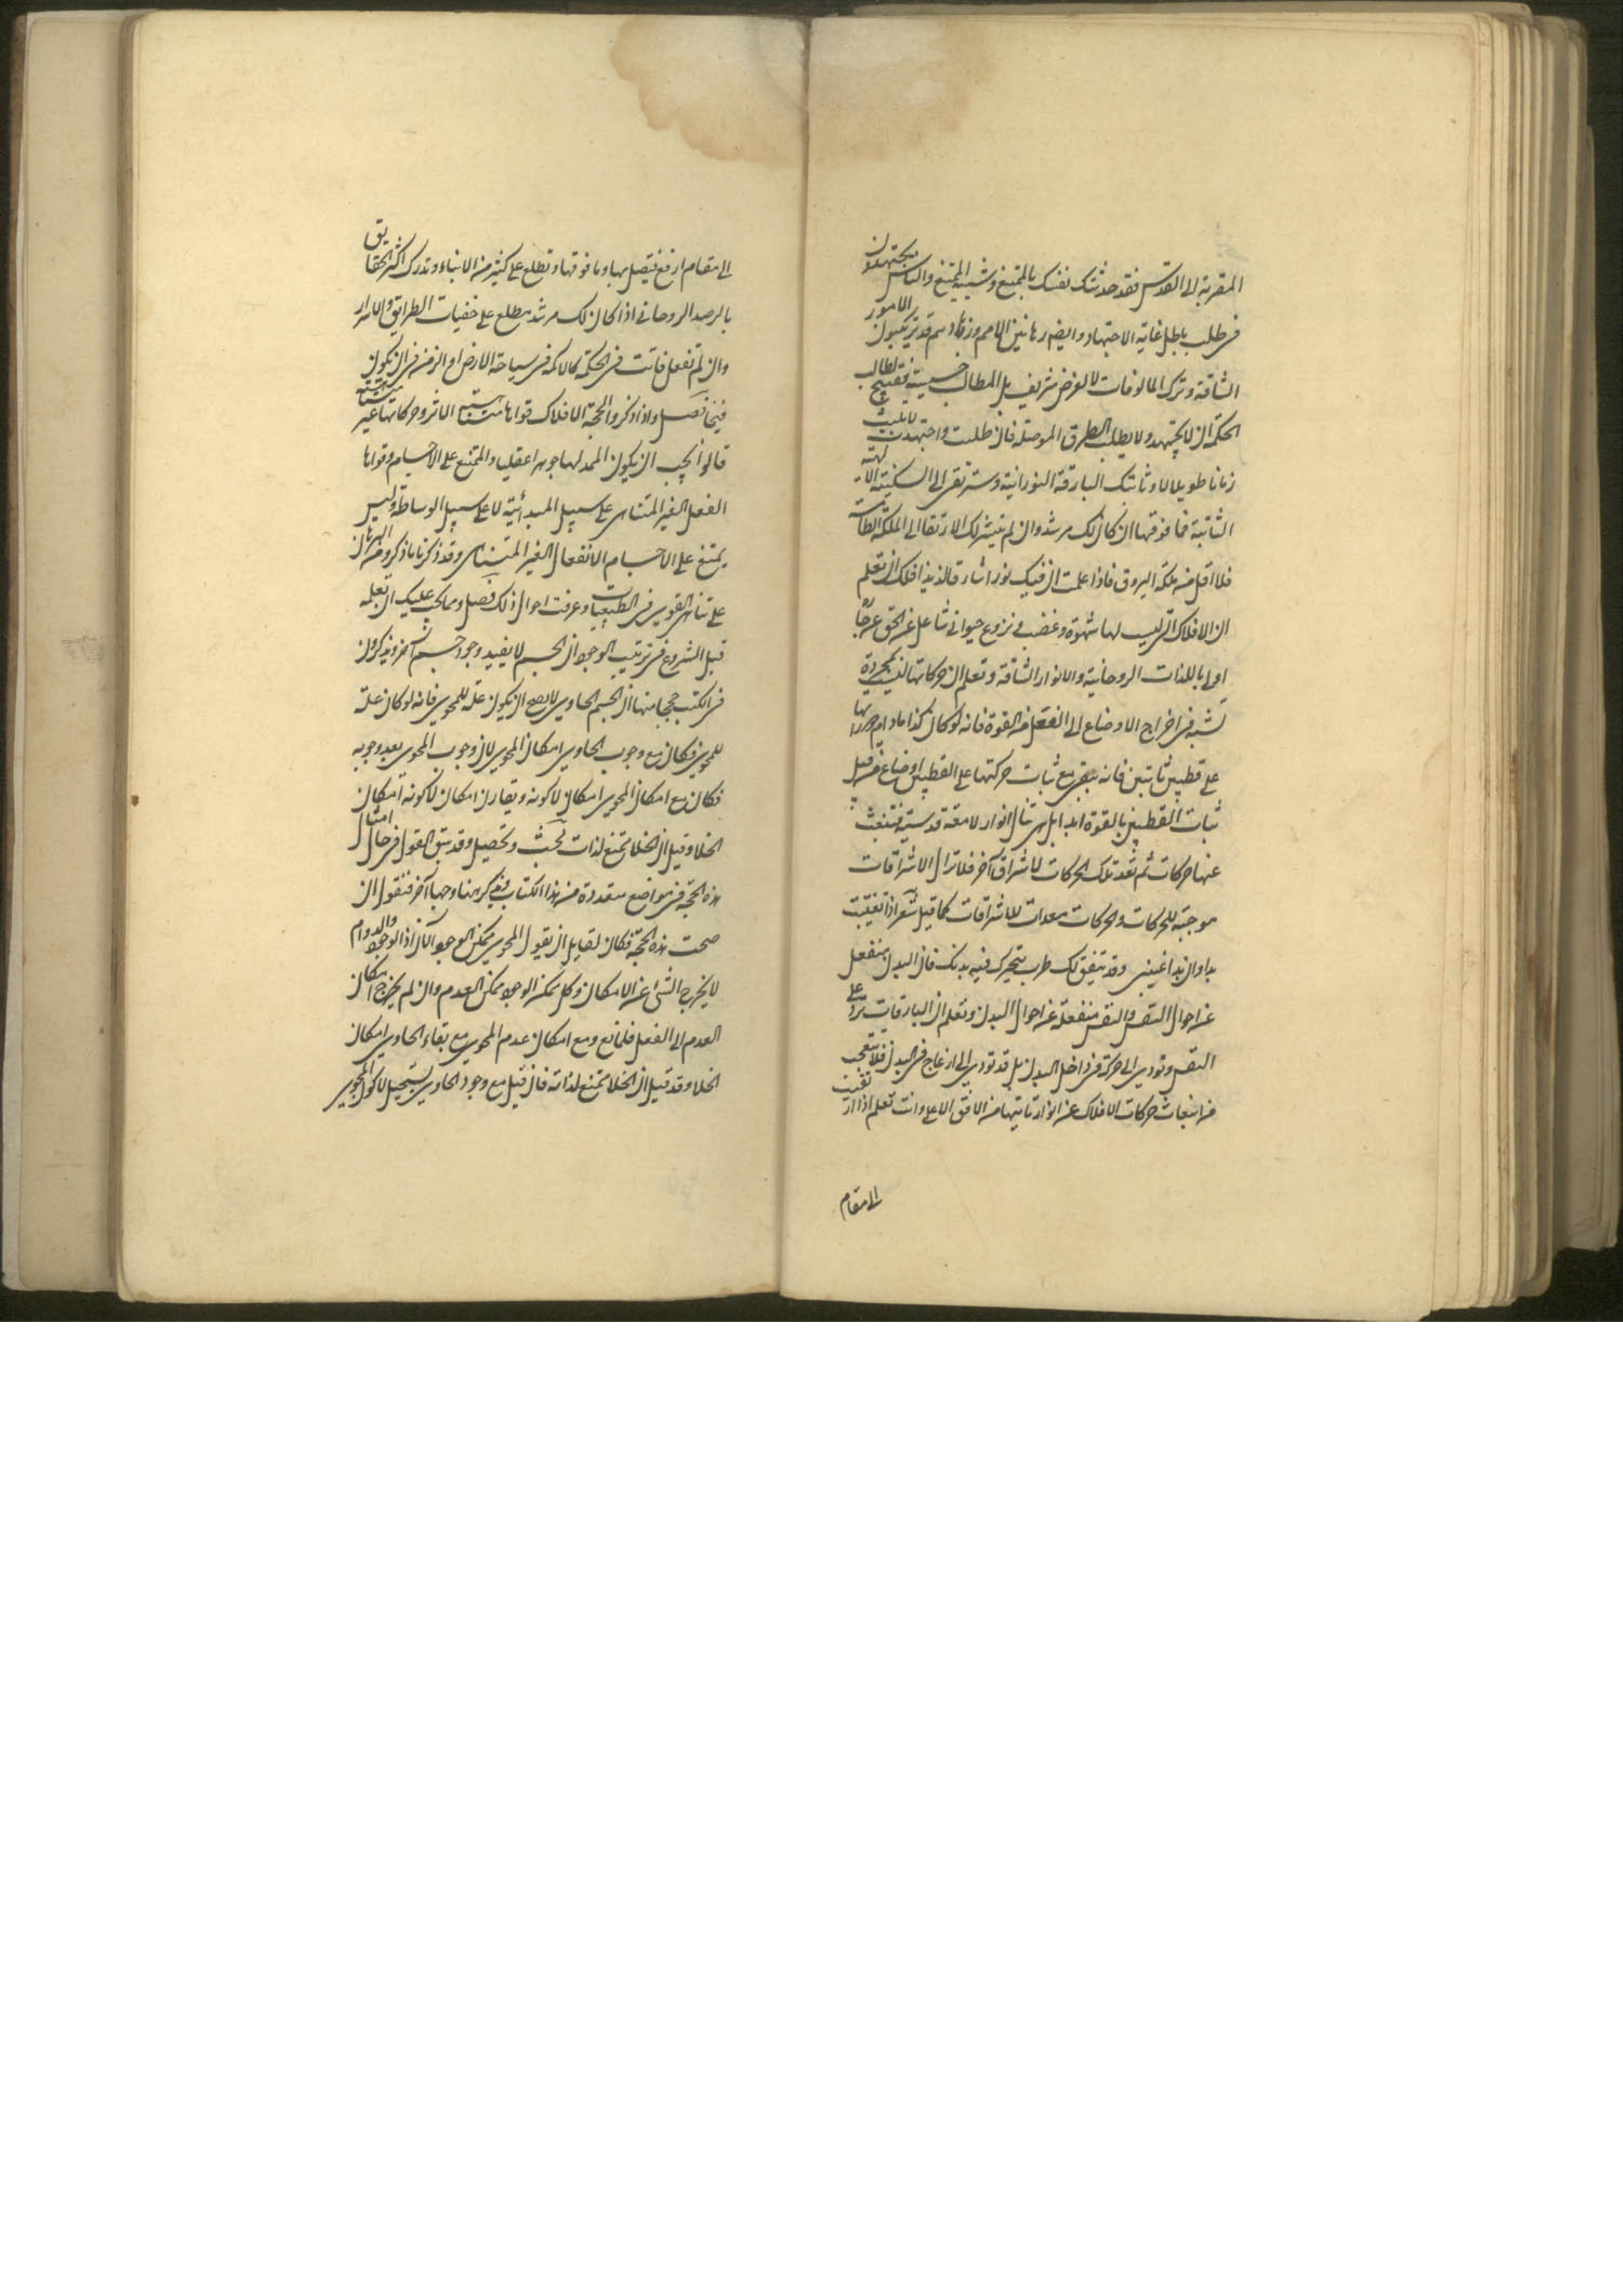 المقربة الى القدس فقد حدثتك نفسك بالممتنع وشبيه الممتنع والناس يجتهدون
فى طلب باطل غاية الاجتهاد وايضا رهابين الامم وزهادهم قد يرتكبون الامور
الشاقة وترك المالوفات لا لغرض شريف بل لمطالب خسيسة فقبيح لطالب
الحكمة ان لا يجتهد ولا يطلب الطرق الموصلة فان طلبت واجتهدت لا تلبث
زمانا طويلا الا وتاتيك البارقة النورانية وسترتقى الى السكينة الالهية
الثابتة فما فوقها ان كان لك مرشد وان لم يتيسر لك الارتقا الى الملكة الطامسة
فلا اقل من ملكة البروق فاذا علمت ان فيك نورا شارقا لذيذا فلك ان تعلم
ان الافلاك التى ليس لها شهوة وغضب ونزوع حيوانى شاغل عن الحق عرجا
اولى باللذات الروحانية والانوار الشاقة وتعلم ان حركاتها ليست لمجردة
تشبه فى اخراج الاوضاع الى الفعل من القوة فانه لو كان كذا ما دام مدارها
على قطبين ثابتين فانه يبقى مع ثبات حركتها على القطبين اوضاع من قبل
ثبات القطبين بالقوة ابدا بل هى تنال انوار لامعة قدسية فتنبعث
عنها حركات ثم تعد تلك الحركات لاشراق آخر فلا تزال الاشراقات
موجبة للحركات والحركات معدات للاشراقات كما قيل شعر اذا تغيبت
بدا وان بدا غيبنى وقد يتفق لك طرب يتحرك فيه بدنك فان البدن ينفعل
عن احوال النفس والنفس منفعلة عن احوال البدن وتعلم ان البارقات ترد على
النفس وتودى الى حركة فى داخل البدن بل قد تودى الى ازعاج فى البدن فلا تتعجب
من انبعاث حركات الافلاك عن انوار تاتيها من الافق الاعلى وانت تعلم اذا ارتقيت
الى مقام
الى مقام ارفع فيتصل بها وما فوقها وتطلع على كثير من الانباء وتدرك اكثر الحقايق
بالرصد الروحانى اذا كان لك مرشد مطلع على خفيات الطرايق والاسرار
وان لم تفعل فانت فى الحكمة كالاكمه فى سياحة الارض او الزمن فى ان يكون
فيجا فصل واذا ذكروا الحجة الافلاك قواها متناهية الاثر وحركاتها غير متناهية
قالوا يجب ان يكون الممد لها جوهرا عقليا والممتنع على الاجسام وقواها
الفعل الغير المتناهى على سبيل المبدائية لا على سبيل الوساطة وليس
يمتنع على الاجسام الانفعال الغير المتناهى وقد ذكرنا ما ذكروه من البرهان
على تناهى القوى فى الطبيعيات وعرفت احوال ذلك فصل ومما يجب عليك ان تعلمه
قبل الشروع فى ترتيب الوجود ان الجسم لا يفيد وجود جسم آخر ويذكرون
فى الكتب حججا منها ان الجسم الحاوى لا يصح ان يكون علة للمحوى فانه لو كان علة
للمحوى فكان مع وجوب الحاوى امكان المحوى لان وجوب المحوى بعد وجوبه
فكان مع امكان المحوى امكان لا كونه ويقارن امكان لا كونه امكان
الخلا وقيل ان الخلا ممتنع لذاته بحث وتحصيل وقد سبق القول فى حال امثال
هذه الحجة فى مواضع متعددة من هذا الكتاب ونذكر هنا وجها آخر فنقول ان
صحت هذه الحجة فكان لقايل ان يقول المحوى ممكن العدم الآن اذ الوجود والدوام
لا يخرج الشئ عن الامكان وكل ممكن الوجود ممكن العدم وان لم يخرج امكان
العدم الى الفعل فلمانع ومع امكان عدم المحوى مع بقاء الحاوى امكان
الخلا وقد قيل ان الخلا ممتنع لذاته فان قيل مع وجود الحاوى يستحيل لا كون المحوى